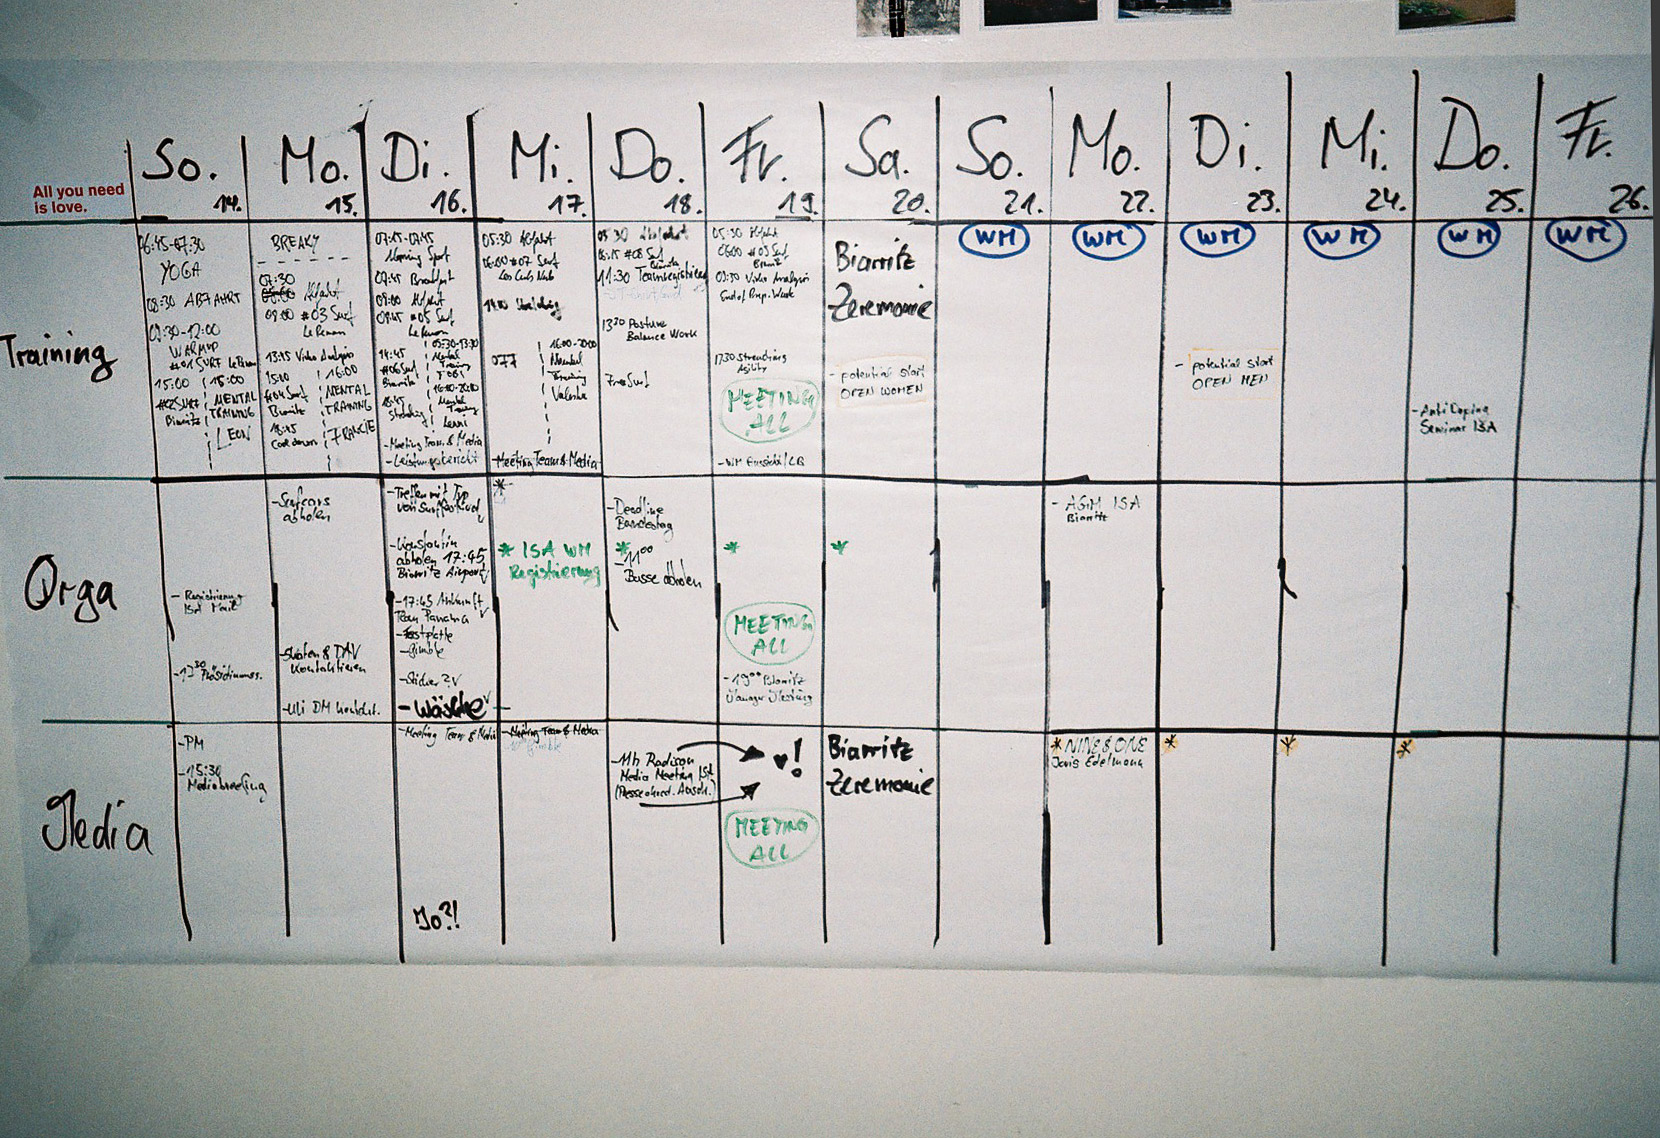 All you need
is love.
So.
14.
Mo.
15.
Di.
16.
Mi.
17.
Do.
18.
Fr.
19.
Sa.
20.
So.
21.
Mo.
22.
Di.
23.
Mi.
24.
Do.
25.
Fr.
26.
Training
06:45-07:30
YOGA
08:30 ABFAHRT
09:30-12:00
WARMUP
#01 SURF
15:00
#02 SURF
Biarritz
15:00
MENTAL
TRAINING
LEON
BREAKY
07:30
Abfahrt
09:00 #03 Surf
Le Penon
13:15 Video Analysis
15:00
#04 Surf
Biarritz
18:45
Cooldown
16:00
MENTAL
TRAINING
FRANCIE
07:15-07:45
Morning Sport
Breakfast
09:00 Abfahrt
09:45 #05 Surf
Le Penon
14:45
#06 Surf
Biarritz
18:45
Stretching
Mental
Training
TOBI
Mental
Training
Lenni
-Meeting Team & Media
-Leistungsbericht
05:30 Abfahrt
06:00 #07 Surf
Stretching
16:00-20:00
Mental
Training
Valeska
-Meeting Team & Media
05:30 Abfahrt
06:15 #08 Surf
Biarritz
11:30 Teamregistrierung
13:30 Posture
Balance Work
Free Surf
05:30 Abfahrt
06:00 #09 Surf
Biarritz
09:30 Video Analysis
End of Prep. Week
17:30 Stretching
Agility
MEETING
ALL
Biarritz
Zeremonie
- potential start
OPEN WOMEN
WM
WM
WM
- potential start
OPEN MEN
WM
WM
- Anti Doping
Seminar ISA
WM
Orga
- Registrierung
ISA
-17:30 Präsidiums.
-Surfcars
abholen
& DAV
kontaktieren
-Uli DM
-Treffen mit Typ
von
-Konstantin
abholen 17:45
Biarritz Airport
-17:45 Ankunft
Team Panama
-Festplatte
-Gimble
-Sticker?
-Wäsche
*
* ISA WM
Registrierung
-Deadline
Bundestag
*
-11:00
Busse abholen
*
MEETING
ALL
-19:00 Biarritz
*
- AGM ISA
Biarritz
Media
-PM
-15:30
Mediabriefing
-Meeting Team & Media
Jo?!
-Meeting Team & Media
Gimble
-11h Radison
Media Meeting ISA
♥!
MEETING
ALL
Biarritz
Zeremonie
* NINE & ONE
Joris Edelmann
*
*
*